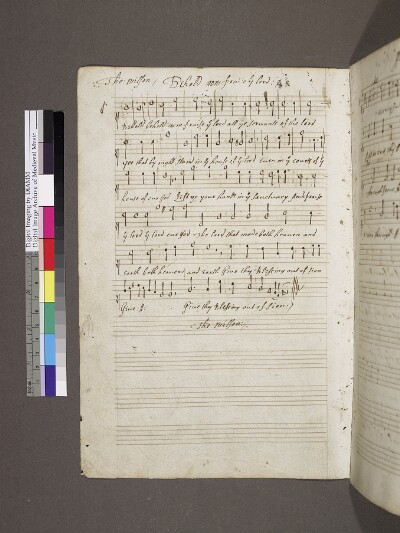 Tho: Wilson: Behold now praise y lord
Behold behold now praise y lord all ye servants of the lord
yee that by night stand in y house of y lord even in y courts of y
house of our god Lift up your hands in y sanctuary And praise
y lord y lord our god The lord that made both heaven and
earth both heaven and earth Give thy blessing out of Sion
Give Give thy blessing out of Sion:
Tho: Wilson:
Digital Imaging by DIAMM
Digital Image Archive of Medieval Music